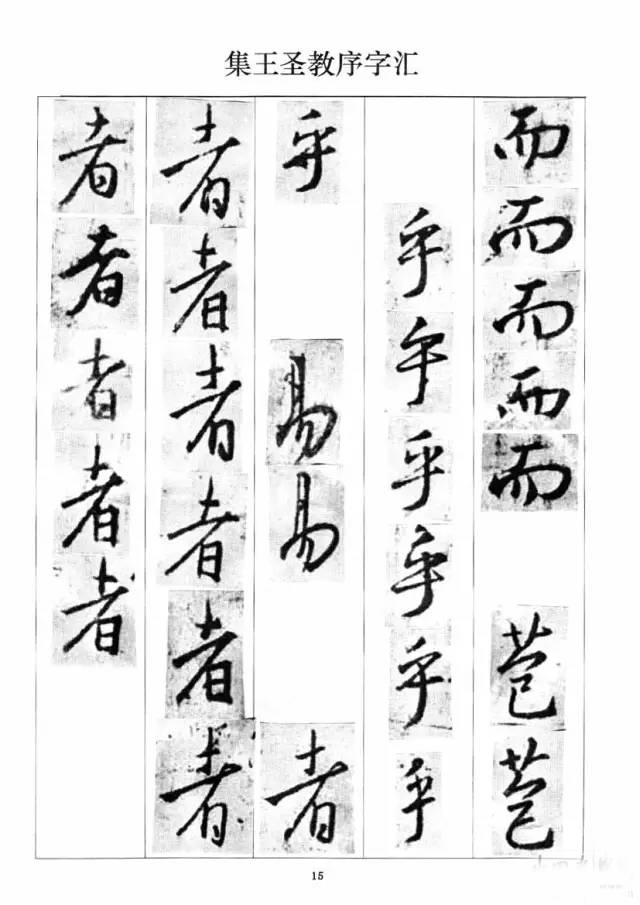 集王圣教序字汇
而
而
而
而
而
苞
苞
乎
乎
乎
乎
乎
乎
乎
易
易
者
者
者
者
者
者
者
者
者
者
者
者
15